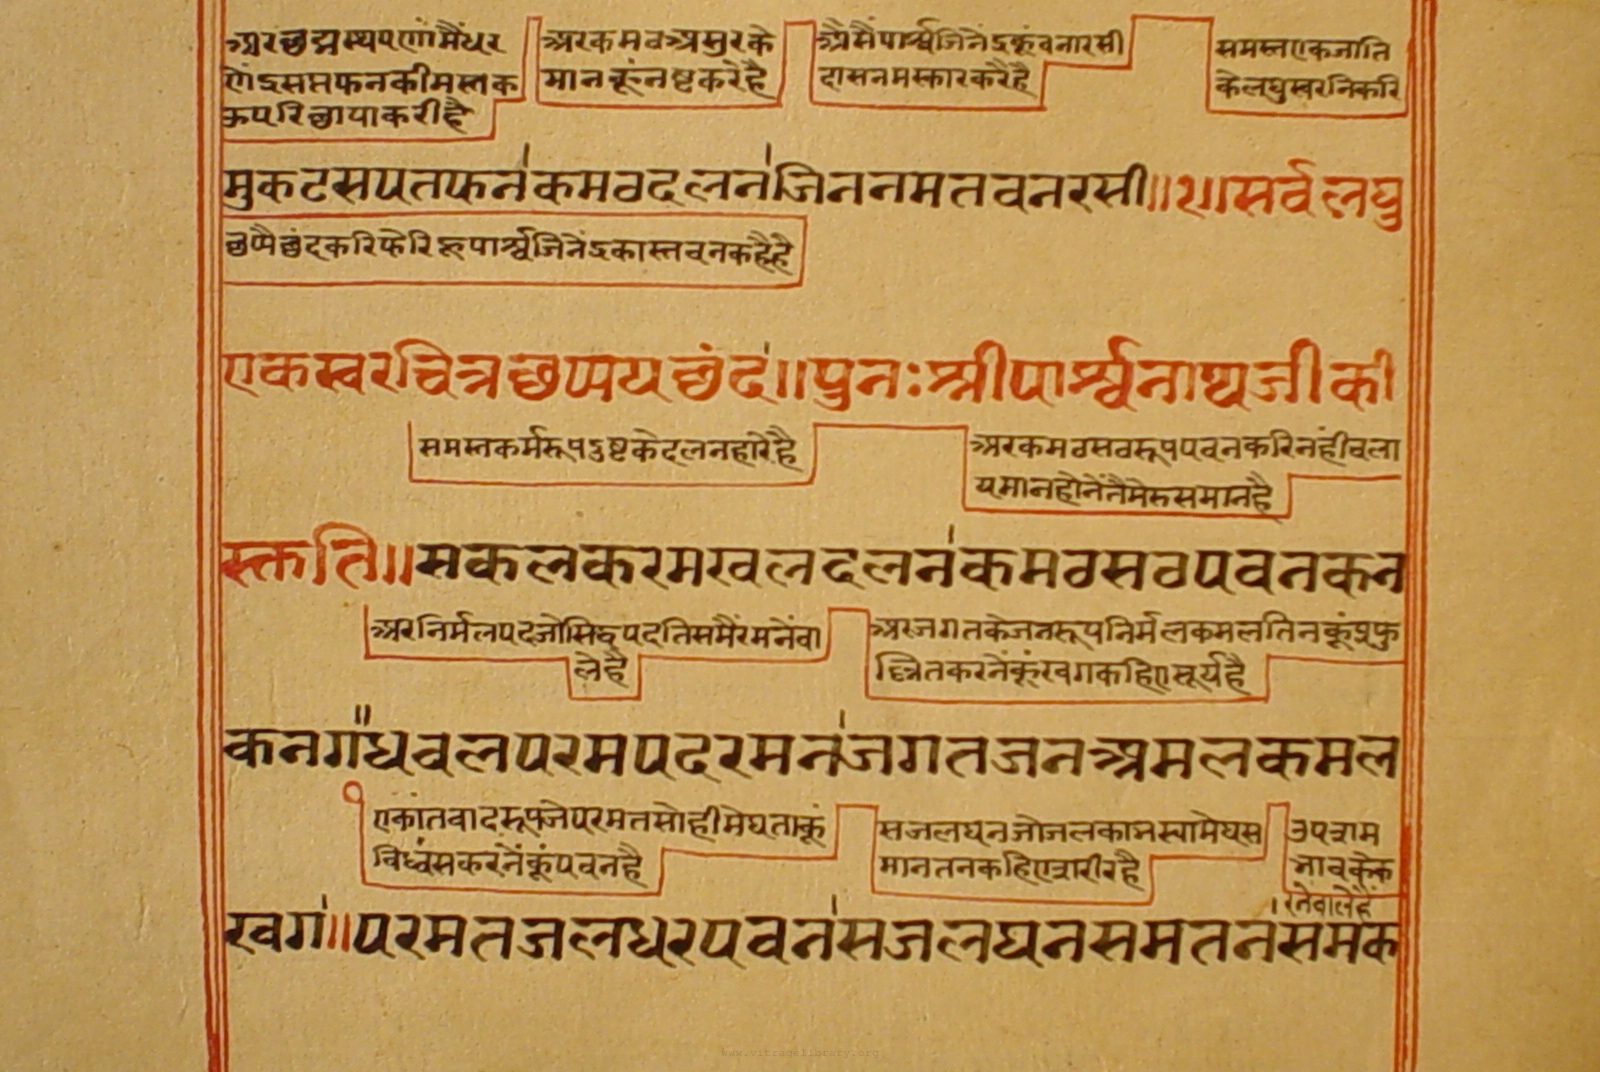 अर छद्मस्थपणां मैं धर
णेंद्र सप्त फन की मस्तक
ऊपरि छाया करी है
अर कमठ असुर के
मान कूं नष्ट करे है
अैसैं पार्श्व जिनेंद्र कूं वनारसी
दास नमस्कार करै है
समस्त एक जाति
के लघु स्वरनि करि
मुकटसपतफनकमठदलनजिननमतवनरसी॥१॥सर्वलघु
छप्पै छंद करि फेरि हू पार्श्व जिनेंद्र का स्तवन कहै है
एकस्वरचित्रछप्पयछंद॥पुनःश्रीपार्श्वनाथजीकी
समस्त कर्म रूप दुष्ट के दलनहारे है
अर कमठ सठ रूप पवन करि नंही चला
यमान होनें तै मेरु समान है
स्तुति॥सकलकरमखलदलनकमठसठपवनकन
अर निर्मल पद जो सिद्ध पद तिस मैं रमनें वा
ले है
अर जगत के जन रूप निर्मल कमल तिन कूं प्रफु
ल्लित करनें कूं खग कहिए सूर्य है
कनगधवलपरमपदरमनजगतजनअमलकमल
एकांतवाद रूप जे परमत सो ही मेघ ता कूं
विध्वंस करनें कूं पवन है
सजल घन जो जल का भस्या मेघ स
मान तन कहिए शरीर है
उपशम
भाव के क
रनेवाले हैं
खग॥परमतजलधरपवनसजलघनसमतनसमक
www.vitragelibrary.org